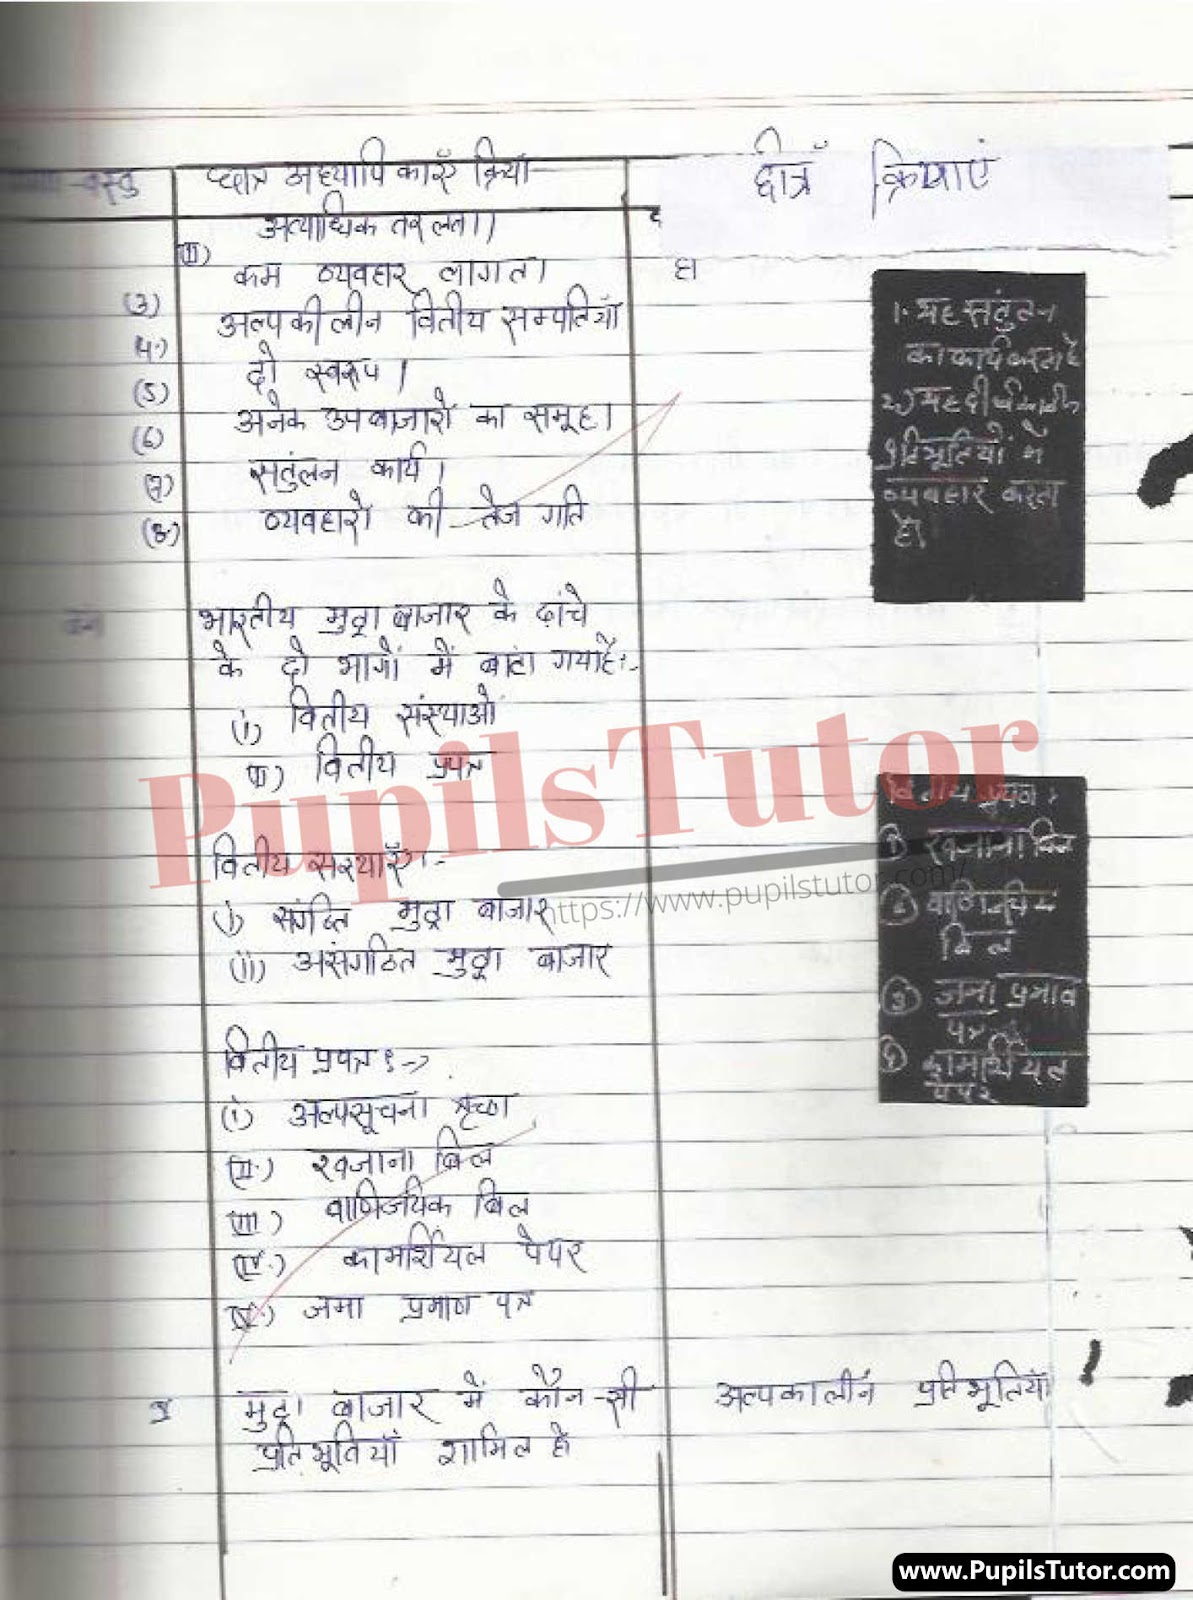 वस्तु
छात्र अध्यापिकाएँ क्रिया
छात्रॉं क्रियाएं
अत्याधिक तरलता।
(II)
कम व्यवहार लागत।
हा
(3)
अल्पकीलीन वितीय सम्पतियाँ
4.)
दो स्वरूप।
(5)
अनेक उपबाजारों का समूह।
(6)
सतुंलन कार्य।
(7)
व्यवहारो की तेज गति
(8)
1. यह सतुंलन
का कार्य करता है
2) यह दीर्घकालीन
प्रतिभूतियों मे
व्यवहार करता
है।
भारतीय मुद्रा बाजार के ढांचे
के दो भागों में बाटां गया है:-
(i) वितीय संस्थाओं
(ii) वितीय प्रपत्र
वितीय प्रपत्र :
① खजाना बिल
② वाणिज्यिक
बिल
③ जमा प्रमाव
पत्र
④ कामर्शियल
पेपर
वितीय सस्थाएँ:-
(i) संगठित मुद्रा बाजार
(ii) असंगठित मुद्रा बाजार
वितीय प्रपत्र :->
(i) अल्पसूचना ऋण
(II.) खजाना बिल
(III) वाणिजयिक बिल
(IV.) कामर्शियल पेपर
(V.) जमा प्रमाण पत्र
प्र
मुद्रा बाजार में कौन-सी
अल्पकालीन प्रतिभूतियाँ
प्रतिभूतियाँ शामिल है
PupilsTutor
https://www.pupilstutor.com/
www.PupilsTutor.com